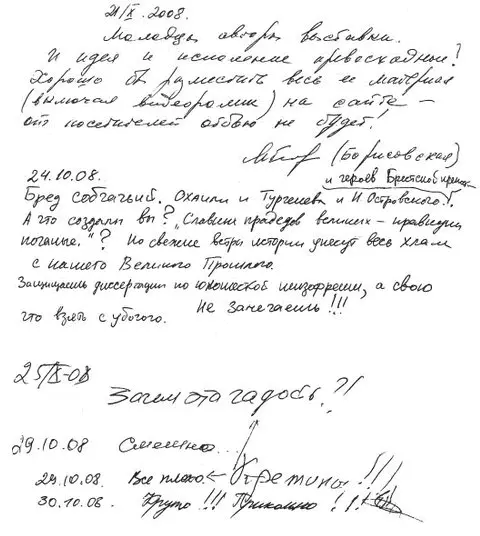 21/X. 2008.
Молодцы авторы выставки.
И идея и исполнение превосходные!
Хорошо бы разместить весь ее материал
(включая видеоролик) на сайте –
от посетителей отбою не будет!
(Борисовская)
24.10.08.
и героев Брестской крепости
Бред собачьий. Охаили и Тургенева и Н Островского!.
А что создали вы? "Славени прадедов великих – правнуки
поганые."? Но свежие ветры истории унесут весь хлам
с нашего Великого Прошлого.
Защищаешь диссертации по юношеской шизофрении, а свою
Не Замечаешь!!!
что взять с убогого.
25/X-08
Зачем эта гадость?!
29.10.08 Смешно...
29.10.08. Все плохо ← Огретины!!!
30.10.08. Круто!!! Прикольно!!!